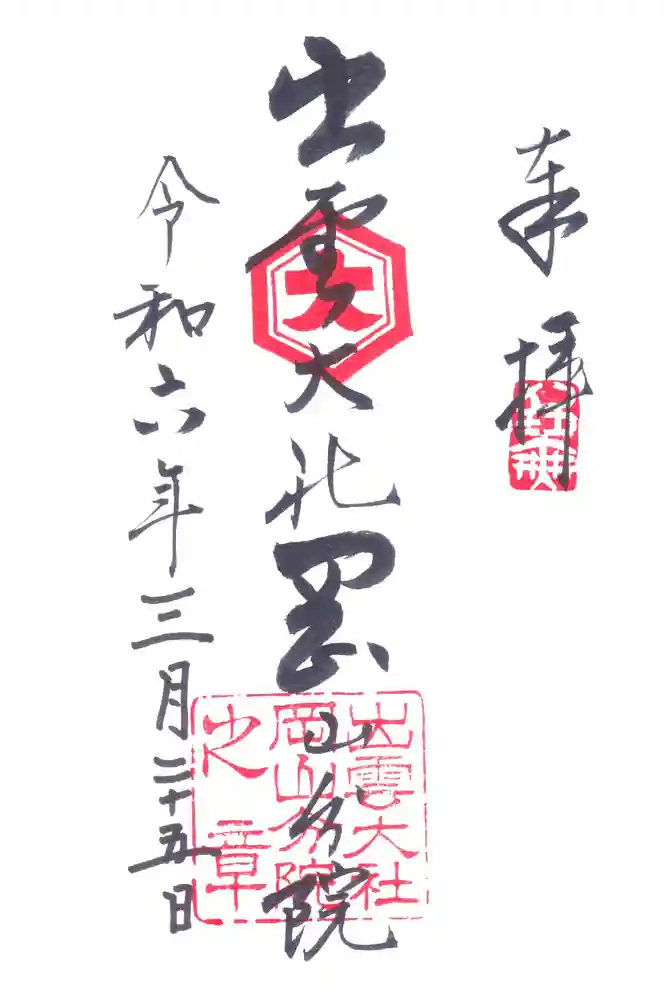 奉拝
出雲大社岡山分院
大
出雲大社
岡山分院
之章
令和六年三月二十五日